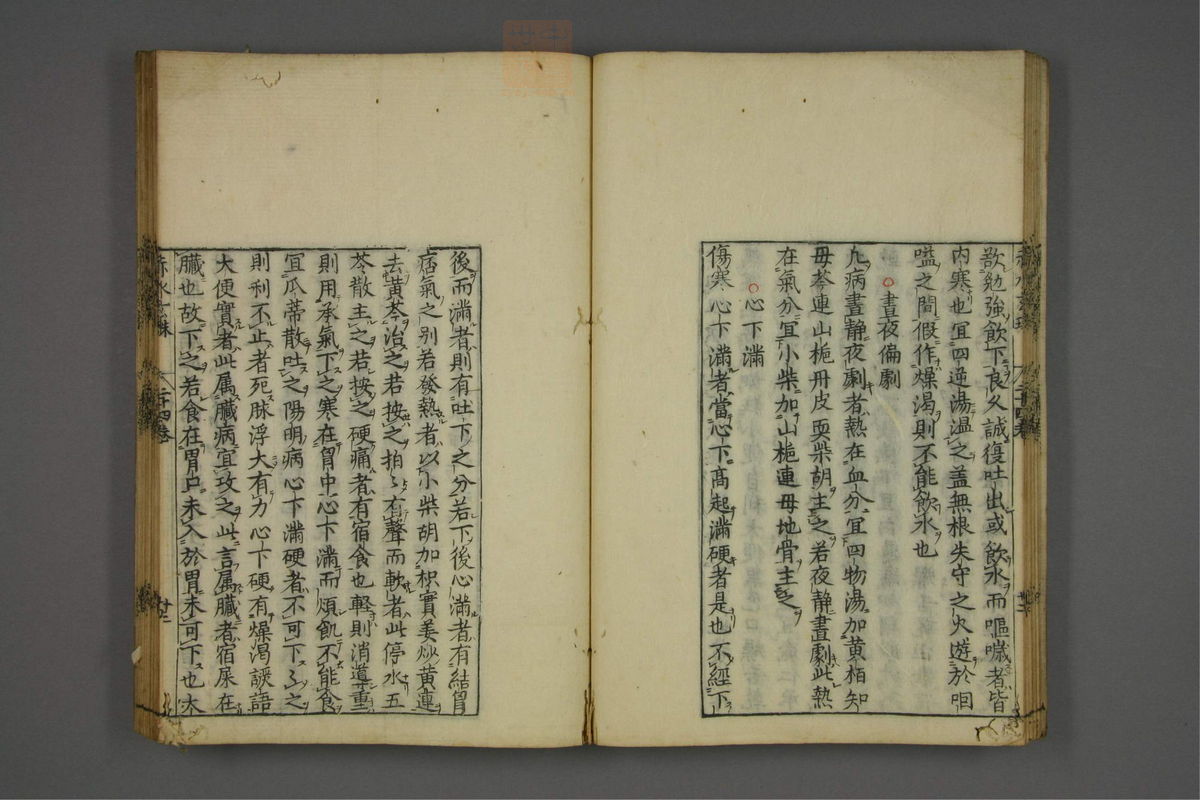 歆勉強飲下良久誠復吐出或飲水而嘔噦者皆
内寒也宜四逆湯温之蓋無根失守之火遊於咽
嗌之間假作燥渴則不能飲水也
晝夜偏劇
凢病晝静夜劇者熱在血分宜四物湯加黄栢知
母芩連山梔丹皮耎柴胡主之若夜静晝劇此熱
在氣分宜小柴加山梔連母地骨主之
心下滿
傷寒心下滿者當心下髙起滿硬者是也不經下
後而滿者則有吐下之分若下後心滿者有結胷
痞氣之别若發熱者以小柴胡加枳實姜炒黄連
去黄芩治之若按之拍〻有聲而軟者此停水五
苓散主之若按之硬痛者有宿食也軽則消導重
則用承氣下之寒在胷中心下滿而煩飢不能食
宜瓜蒂散吐之陽明病心下滿硬者不可下〻之
則利不止者死脉浮大有力心下硬有燥渴譫語
大便實者此属臓病宜攻之此言属臓者宿屎在
臓也故下之若食在胃口未入於胃未可下也太
赤水玄珠
二十四巻
廿二